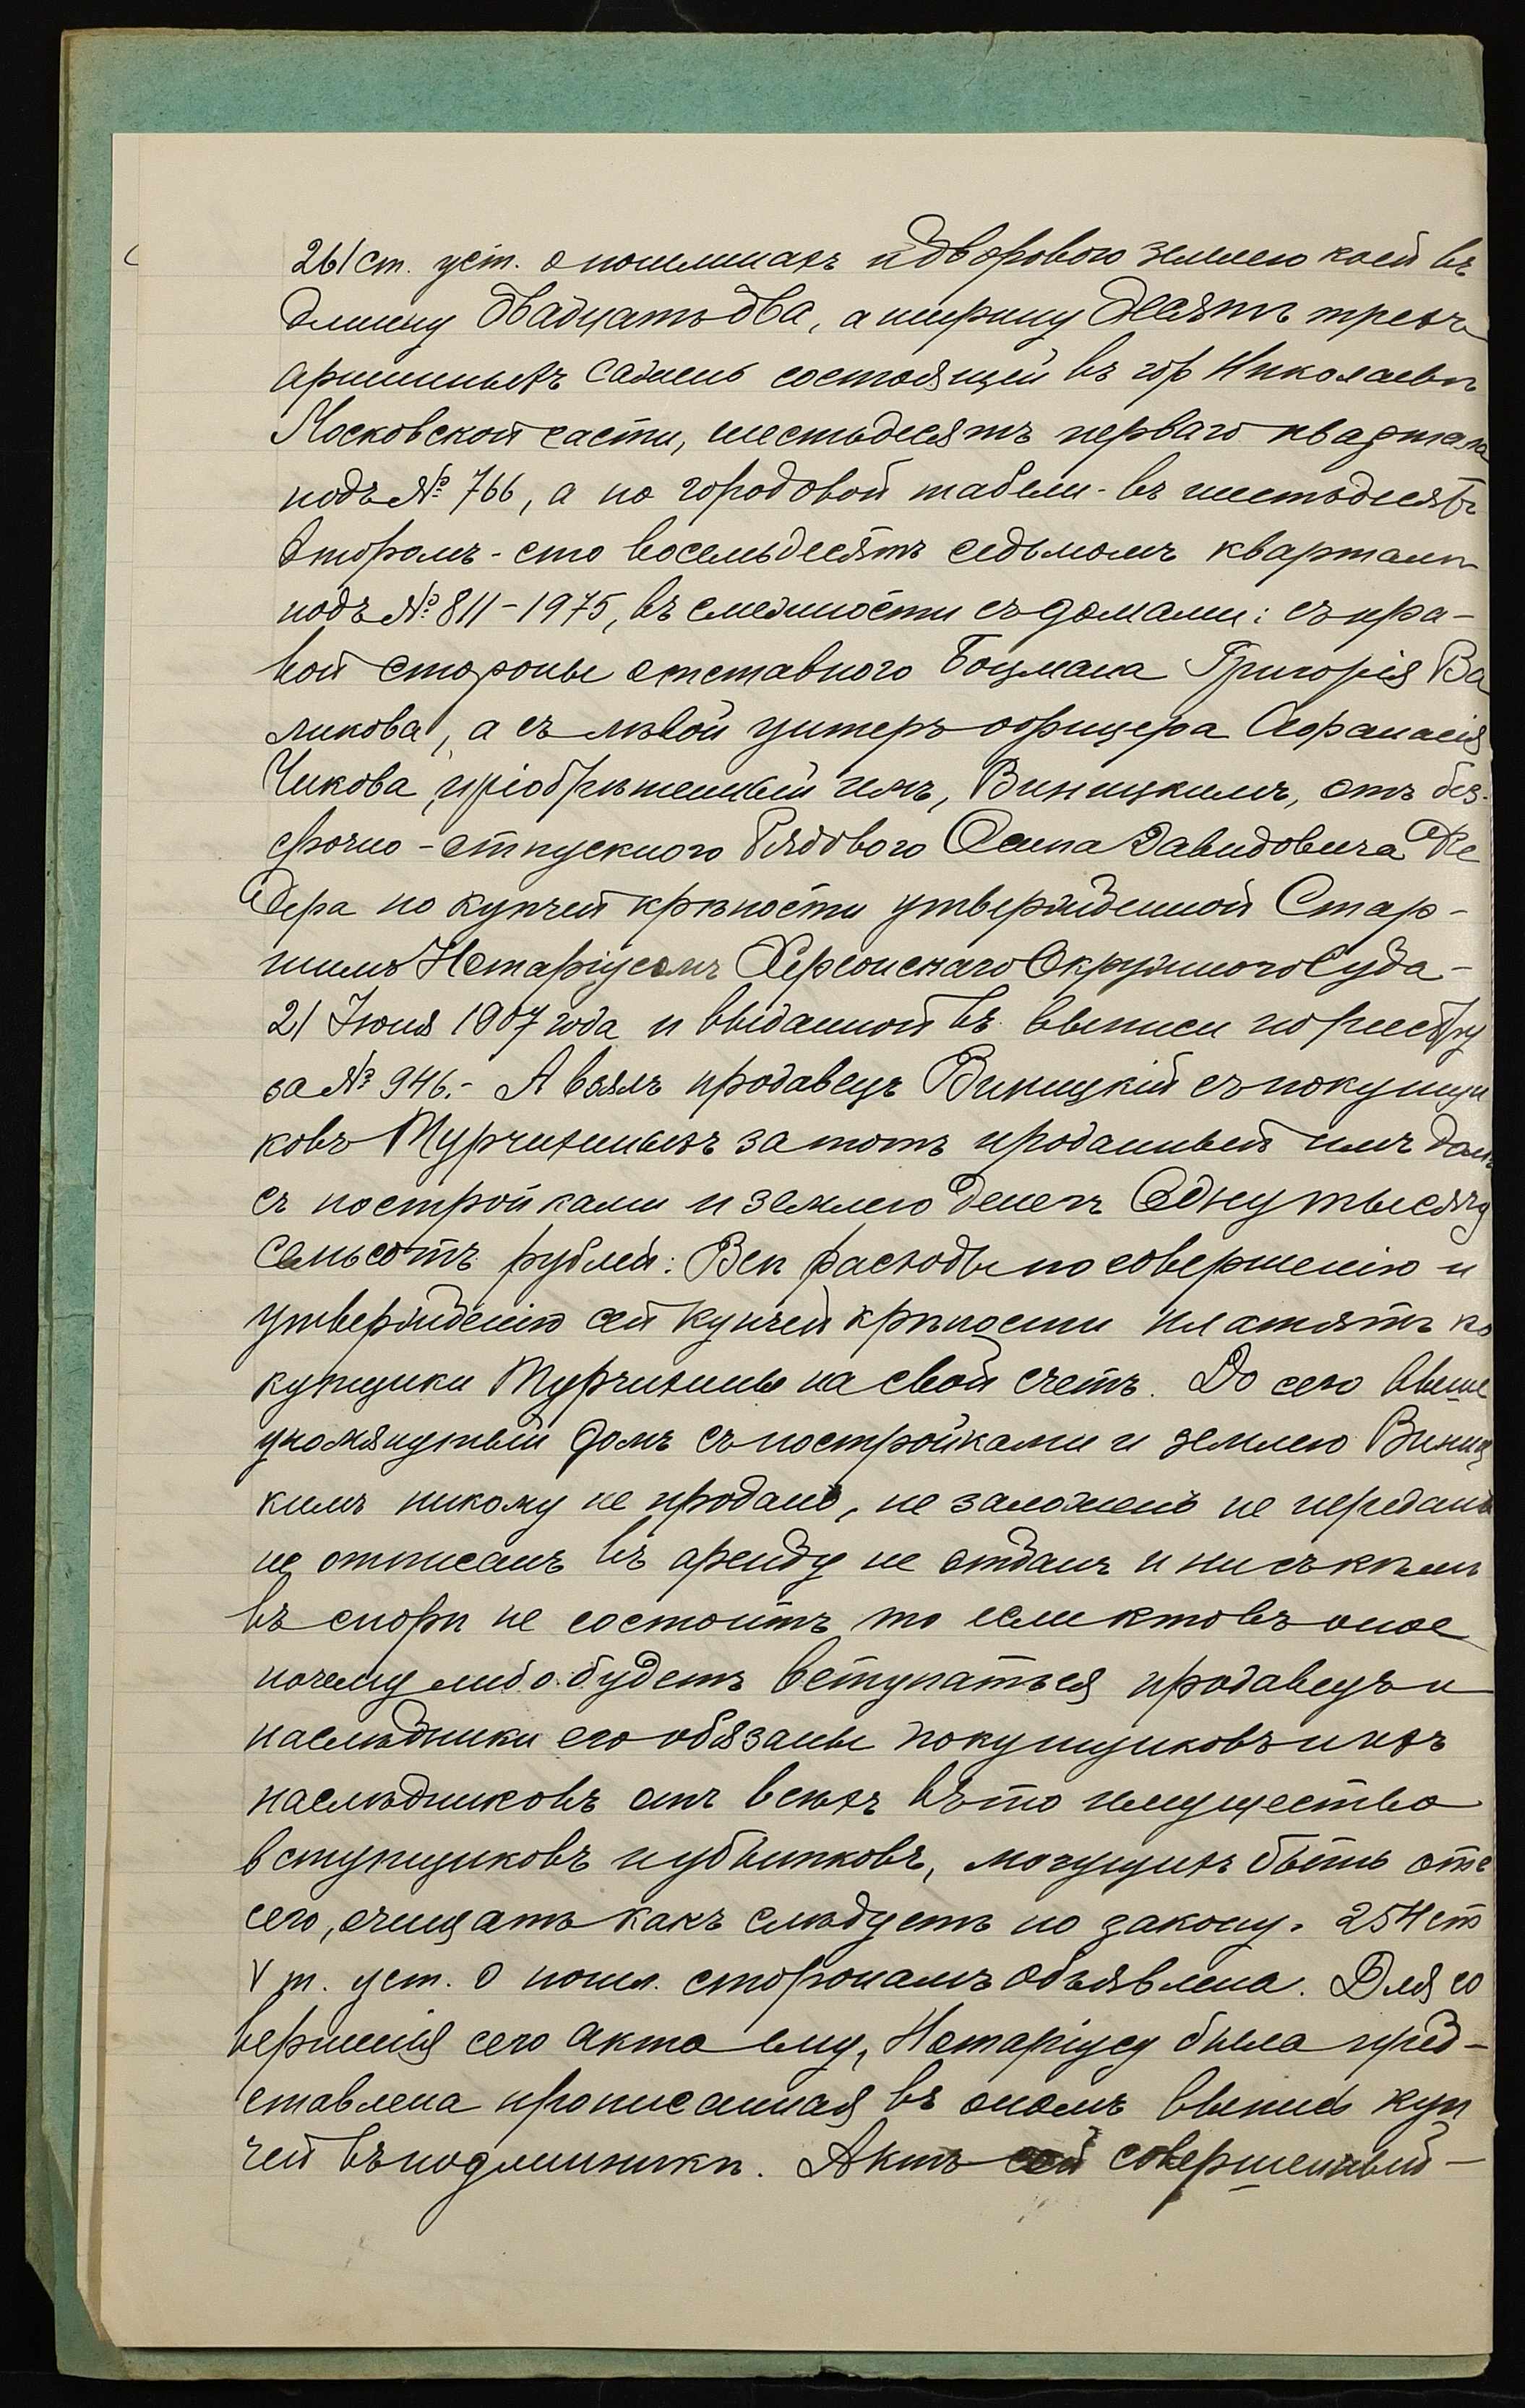 261 ст. уст. о пошлинахъ и дворового землею коей въ
длину двадцать два, а ширину десять трехъ
аршинныхъ сажень состоящей въ гор Николаевѣ
Московской части, шестьдесятъ перваго квартала
подъ № 766, а по городовой табели - въ шестьдесятъ
второмъ - сто восемьдесятъ седьмомъ кварталѣ
подъ № 811-1975, въ смежности съ домами: съ пра-
вой стороны отставного Боцмана Григорія Ва
ликова, а съ лѣвой унтеръ офицера Афанасія
Чикова, пріобрѣтенный имъ, Виницкимъ, отъ без-
срочно-отпускного Рядового Осипа Давидовича
по купчей крѣпости утвержденной Стар-
шимъ Нотаріусомъ Херсонскаго Окружного Суда -
21 Іюня 1907 года и выданной въ выписи по реестру
за № 946.- А взялъ продавецъ Виницкій съ покупщи
ковъ Турчихиныхъ за тотъ проданный имъ домъ
съ постройками и землею денегъ Одну тысячу
Семьсотъ рублей: Всѣ расходы по совершенію и
утвержденію сей купчей крѣпости платятъ по
купщики Турчихины на свой счетъ. До сего выше
упомянутый домъ съ постройками и землею Виниц
кимъ никому не проданъ, не заложенъ не переданъ
не отписанъ въ аренду не отданъ и ни съ кѣмъ
въ спорѣ не состоитъ то если кто въ оное
почему либо будетъ вступаться продавецъ и
наслѣдники его обязаны покупщиковъ и ихъ
наслѣдниковъ отъ всѣхъ въ то имущество
вступщиковъ и убытковъ, могущихъ быть отъ
сего, очищать какъ слѣдуетъ по закону. 254 ст
V т. уст. о пошл. сторонамъ объявлена. Для со
вершенія сего акта ему, Нотаріусу была пред-
ставлена прописанная въ ономъ выпись куп
чей въ подлинникѣ. Актъ сей совершенный -